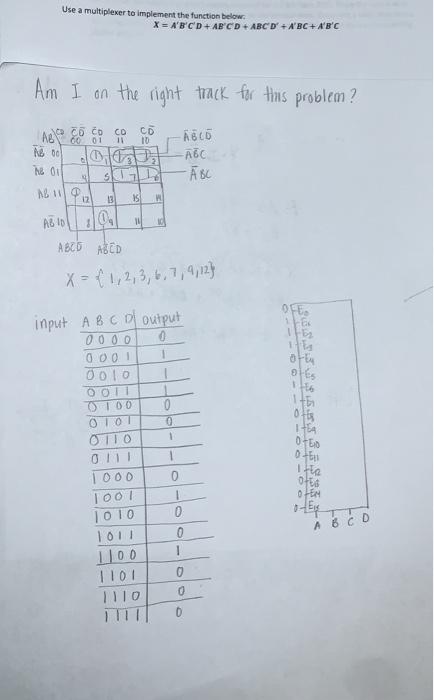 Use a multiplexer to implement the function below:
X = A'B'C'D + AB'C'D + ABC'D' + A'BC + A'B'C
Am I on the right track for this problem?
AB\CD C̄D̄ C̄D CD CD̄
00 01 11 10
ĀB̄ 00 0 1 1 1 3 1 2
ĀB 01 4 5 1 7 1 6
AB 11 1 12 13 15 14
AB̄ 10 8 1 9 11 10
ĀB̄C̄D̄
ĀB̄C
ĀBC
ABC̄D̄ AB̄C̄D
X = {1,2,3,6,7,9,12}
input A B C D output
0 0 0 0 0
0 0 0 1 1
0 0 1 0 1
0 0 1 1 1
0 1 0 0 0
0 1 0 1 0
0 1 1 0 1
0 1 1 1 1
1 0 0 0 0
1 0 0 1 1
1 0 1 0 0
1 0 1 1 0
1 1 0 0 1
1 1 0 1 0
1 1 1 0 0
1 1 1 1 0
0 E0
1 E1
1 E2
1 E3
0 E4
0 E5
1 E6
1 E7
0 E8
1 E9
0 E10
0 E11
1 E12
0 E13
0 E14
0 E15
A B C D